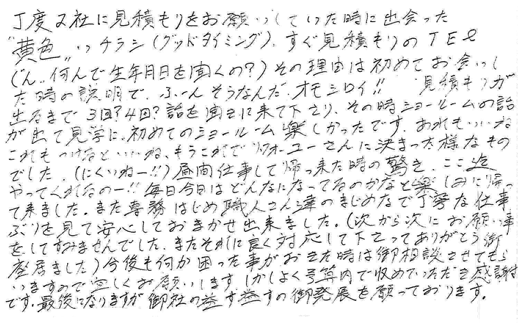 丁度2社に見積もりをお願いしていた時に出会った
"黄色"いチラシ(グッドタイミング)、すぐ見積もりのTEL
(ん、何んで生年月日を聞くの?)その理由は初めてお会いし
た時の説明で、ふーんそうなんだ、オモシロイ!! 見積もりが
出るまで3回?4回?話を聞きに来て下さり、その時ショールームの話
が出て見学に、初めてのショールーム楽しかったです。あれもいいね
これもつけるといいね、もうこれでフォーユーさんに決まった様なもの
でした。(にくいねー!!)昼間仕事して帰って来た時の驚き、ここ迄
やってくれるのー!!毎日今日はどんなになってるのかなと楽しみに帰っ
て来ました。また専務はじめ職人さん達のまじめなで丁寧な仕事
ぶりを見て安心しておまかせ出来ました。(次から次にお願い事
をしてすみませんでした、またそれに良く対応して下さってありがとう御
座居ました)今後も何か困った事がおきた時は御相談させてもら
いますので宜しくお願いします
です。最後になりますが御社の益す益すの御発展を願っております。